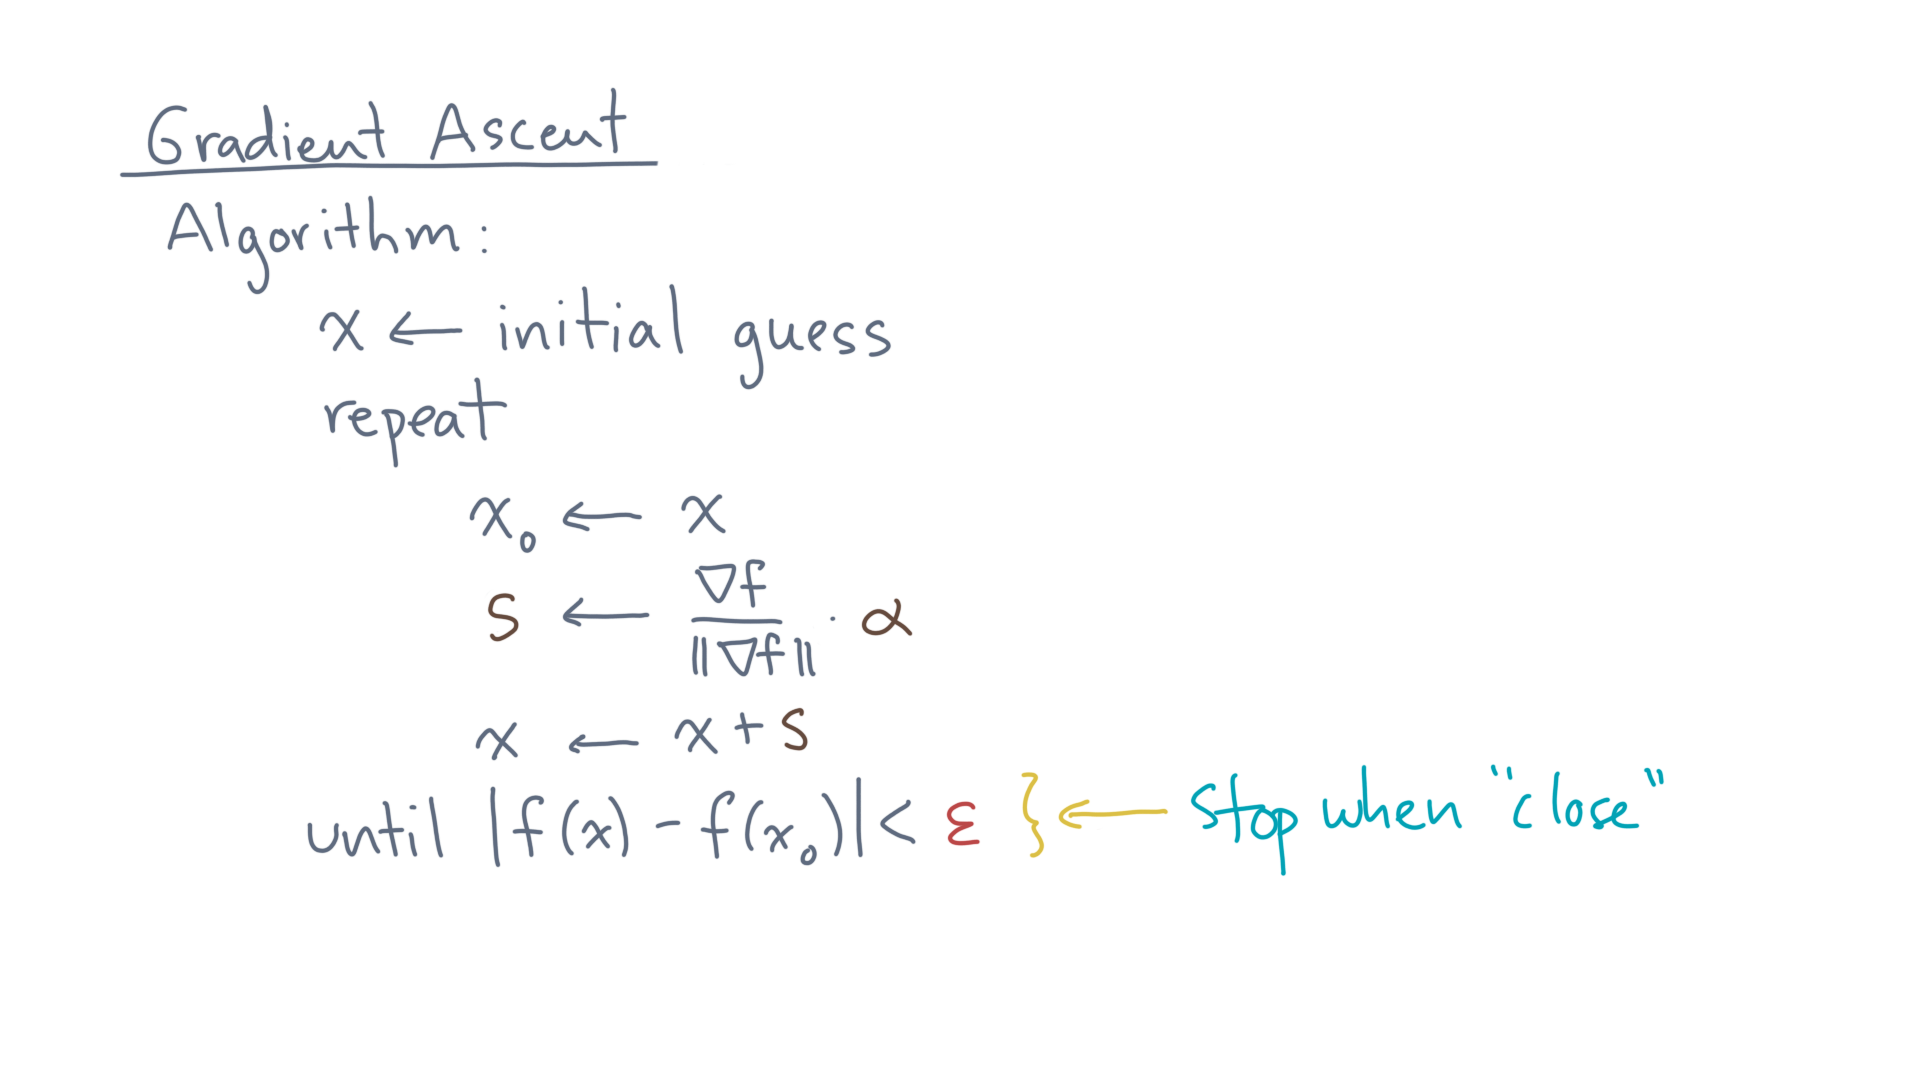 Gradient Ascent
Algorithm:
x ← initial guess
repeat
x₀ ← x
s ← ∇f / ‖∇f‖ · α
x ← x + s
until |f(x) - f(x₀)| < ε } ← Stop when "close"